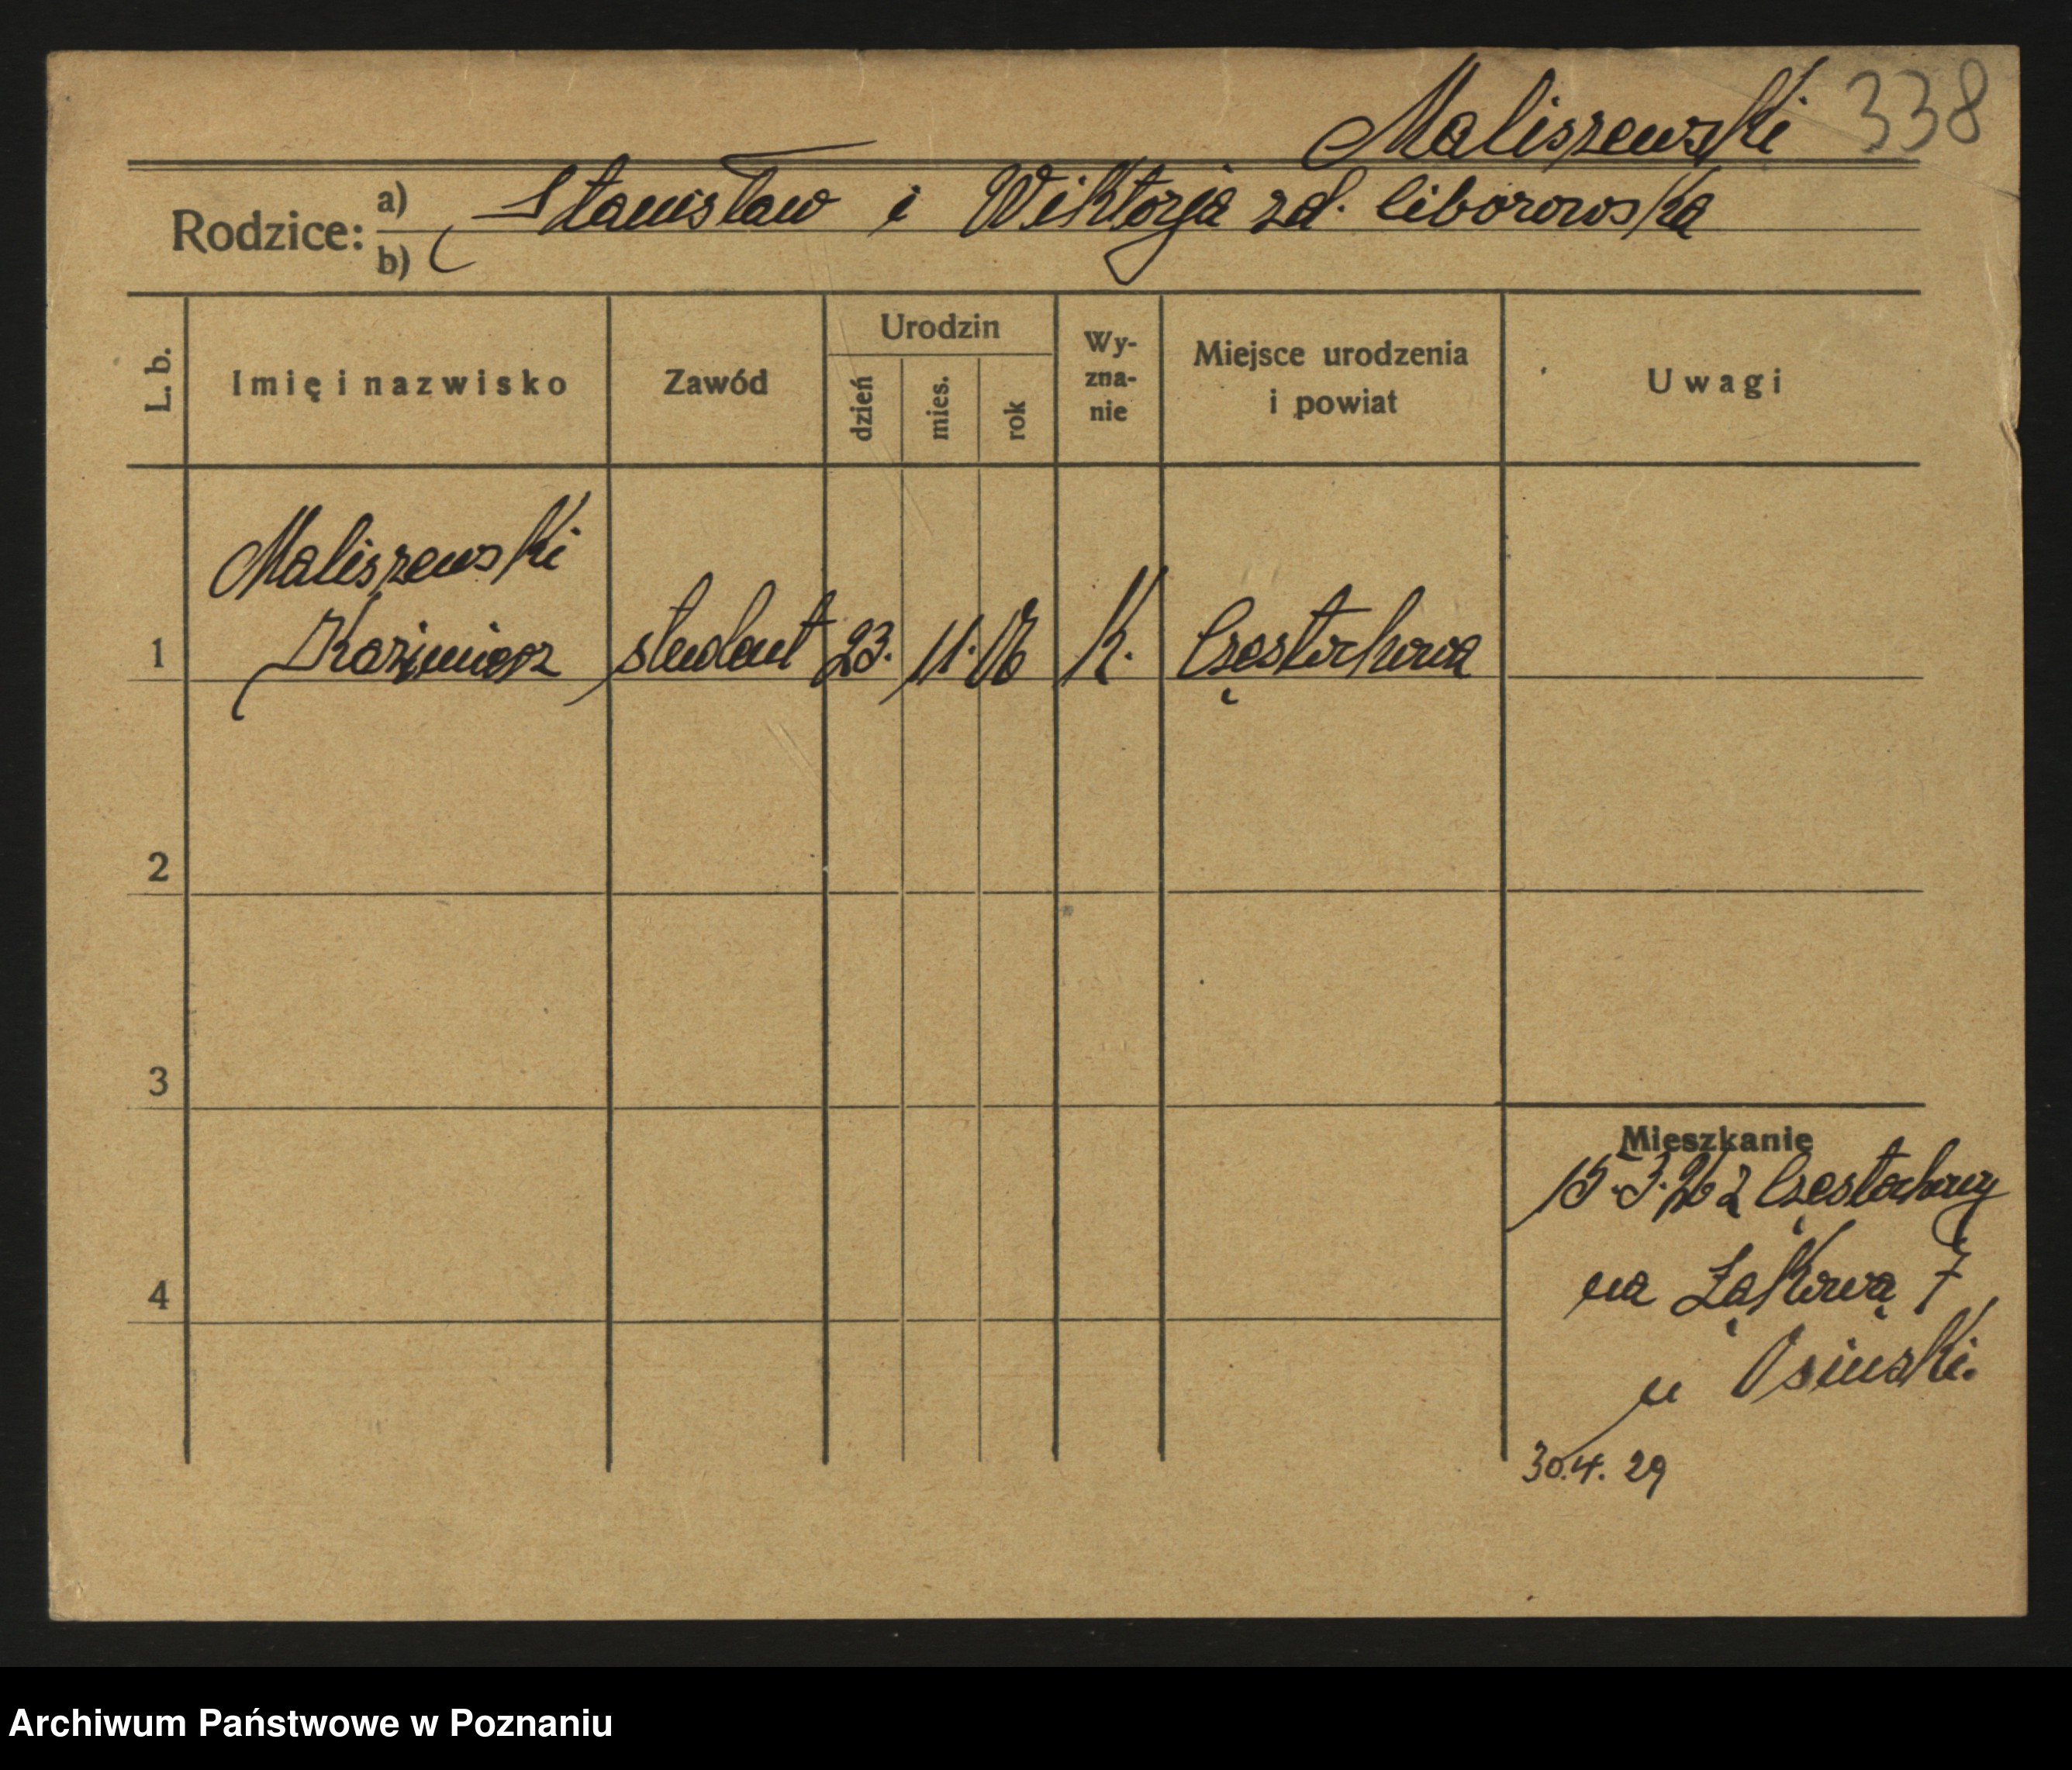 Maliszewski 338
Rodzice: a) Stanisław i Wiktorja zd. Liborowska
b)
L. b. Imię i nazwisko Zawód Urodzin dzień mies. rok Wy-zna-nie Miejsce urodzenia i powiat Uwagi
Maliszewski
1 Kazimierz student 23. 11. 06 K. Częstochowa
2
3
Mieszkanie
15.3.26 z Częstochowy
4 na Łąkową 7
u Osinski.
30.4. 29
Archiwum Państwowe w Poznaniu